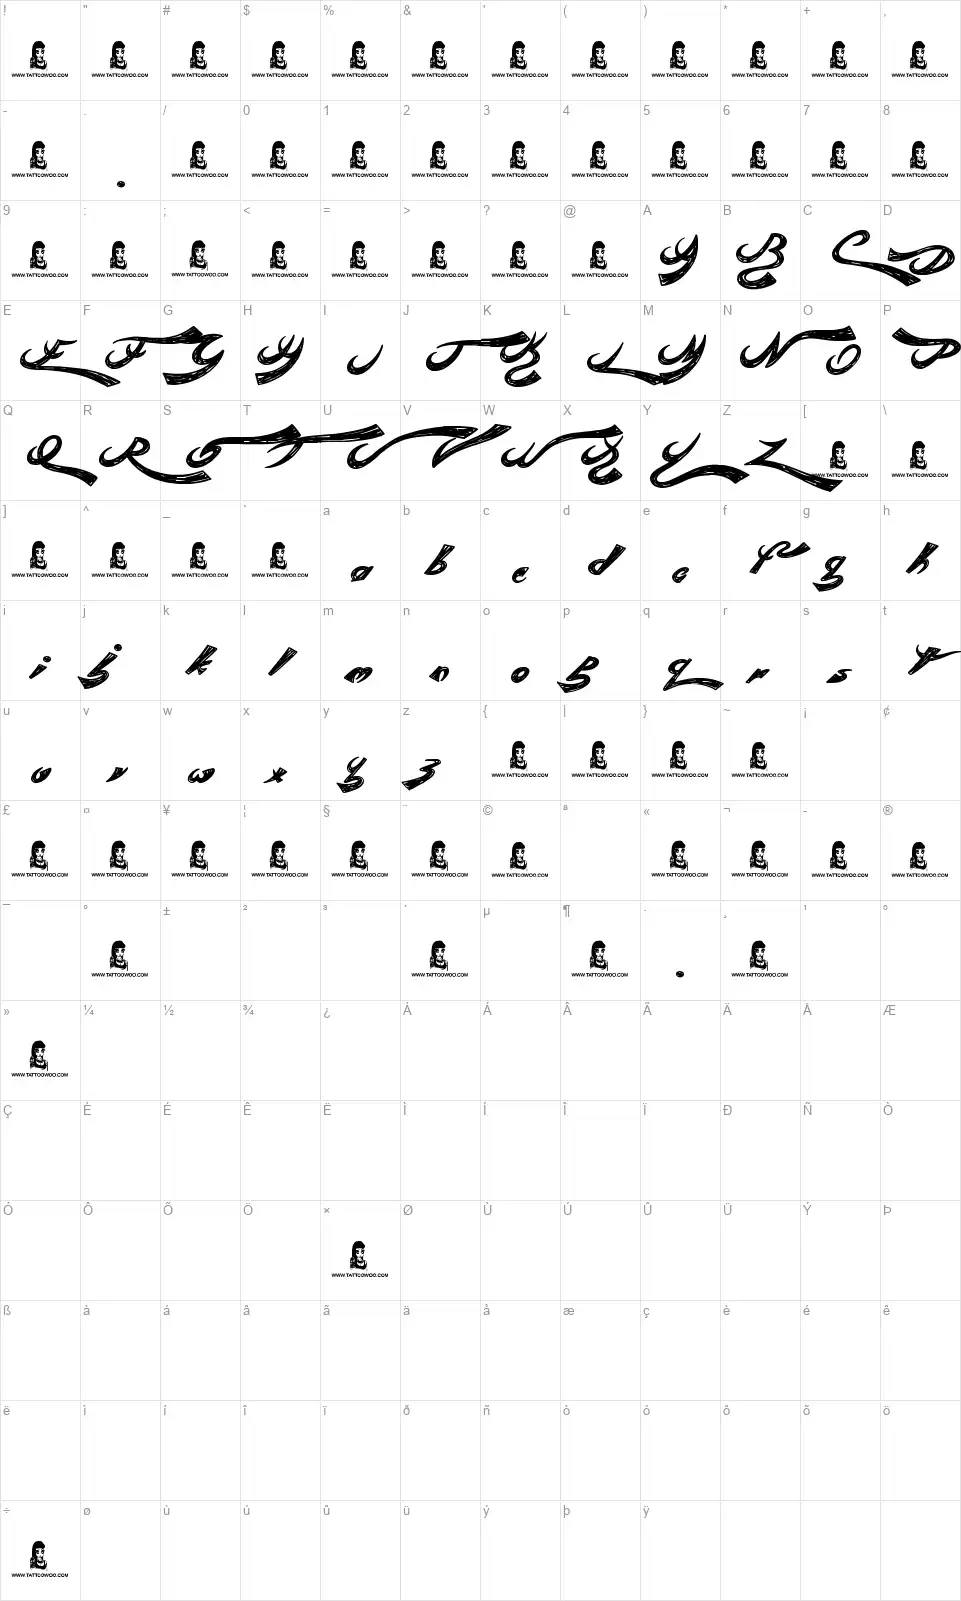 ! " # $ % & ' ( ) * + ,
WWW.TATTOOWOO.COM WWW.TATTOOWOO.COM WWW.TATTOOWOO.COM WWW.TATTOOWOO.COM WWW.TATTOOWOO.COM WWW.TATTOOWOO.COM WWW.TATTOOWOO.COM WWW.TATTOOWOO.COM WWW.TATTOOWOO.COM WWW.TATTOOWOO.COM WWW.TATTOOWOO.COM WWW.TATTOOWOO.COM
- . / 0 1 2 3 4 5 6 7 8
WWW.TATTOOWOO.COM . WWW.TATTOOWOO.COM WWW.TATTOOWOO.COM WWW.TATTOOWOO.COM WWW.TATTOOWOO.COM WWW.TATTOOWOO.COM WWW.TATTOOWOO.COM WWW.TATTOOWOO.COM WWW.TATTOOWOO.COM WWW.TATTOOWOO.COM WWW.TATTOOWOO.COM
9 : ; < = > ? @ A B C D
WWW.TATTOOWOO.COM WWW.TATTOOWOO.COM WWW.TATTOOWOO.COM WWW.TATTOOWOO.COM WWW.TATTOOWOO.COM WWW.TATTOOWOO.COM WWW.TATTOOWOO.COM WWW.TATTOOWOO.COM A B C D
E F G H I J K L M N O P
E F G H I J K L M N O P
Q R S T U V W X Y Z [ \
Q R S T U V W X Y Z WWW.TATTOOWOO.COM WWW.TATTOOWOO.COM
] ^ _ ` a b c d e f g h
WWW.TATTOOWOO.COM WWW.TATTOOWOO.COM WWW.TATTOOWOO.COM WWW.TATTOOWOO.COM a b c d e f g h
i j k l m n o p q r s t
i j k l m n o p q r s t
u v w x y z { | } ~ ¡ ¢
u v w x y z WWW.TATTOOWOO.COM WWW.TATTOOWOO.COM WWW.TATTOOWOO.COM WWW.TATTOOWOO.COM
£ ¤ ¥ ¦ § ¨ © ª « ¬ - ®
WWW.TATTOOWOO.COM WWW.TATTOOWOO.COM WWW.TATTOOWOO.COM WWW.TATTOOWOO.COM WWW.TATTOOWOO.COM WWW.TATTOOWOO.COM WWW.TATTOOWOO.COM WWW.TATTOOWOO.COM WWW.TATTOOWOO.COM WWW.TATTOOWOO.COM WWW.TATTOOWOO.COM
¯ ° ± ² ³ ´ µ ¶ · ¸ ¹ º
WWW.TATTOOWOO.COM WWW.TATTOOWOO.COM WWW.TATTOOWOO.COM . WWW.TATTOOWOO.COM
» ¼ ½ ¾ ¿ À Á Â Ã Ä Å Æ
WWW.TATTOOWOO.COM
Ç È É Ê Ë Ì Í Î Ï Ð Ñ Ò
Ó Ô Õ Ö × Ø Ù Ú Û Ü Ý Þ
WWW.TATTOOWOO.COM
ß à á â ã ä å æ ç è é ê
ë ì í î ï ð ñ ò ó ô õ ö
÷ ø ù ú û ü ý þ ÿ
WWW.TATTOOWOO.COM